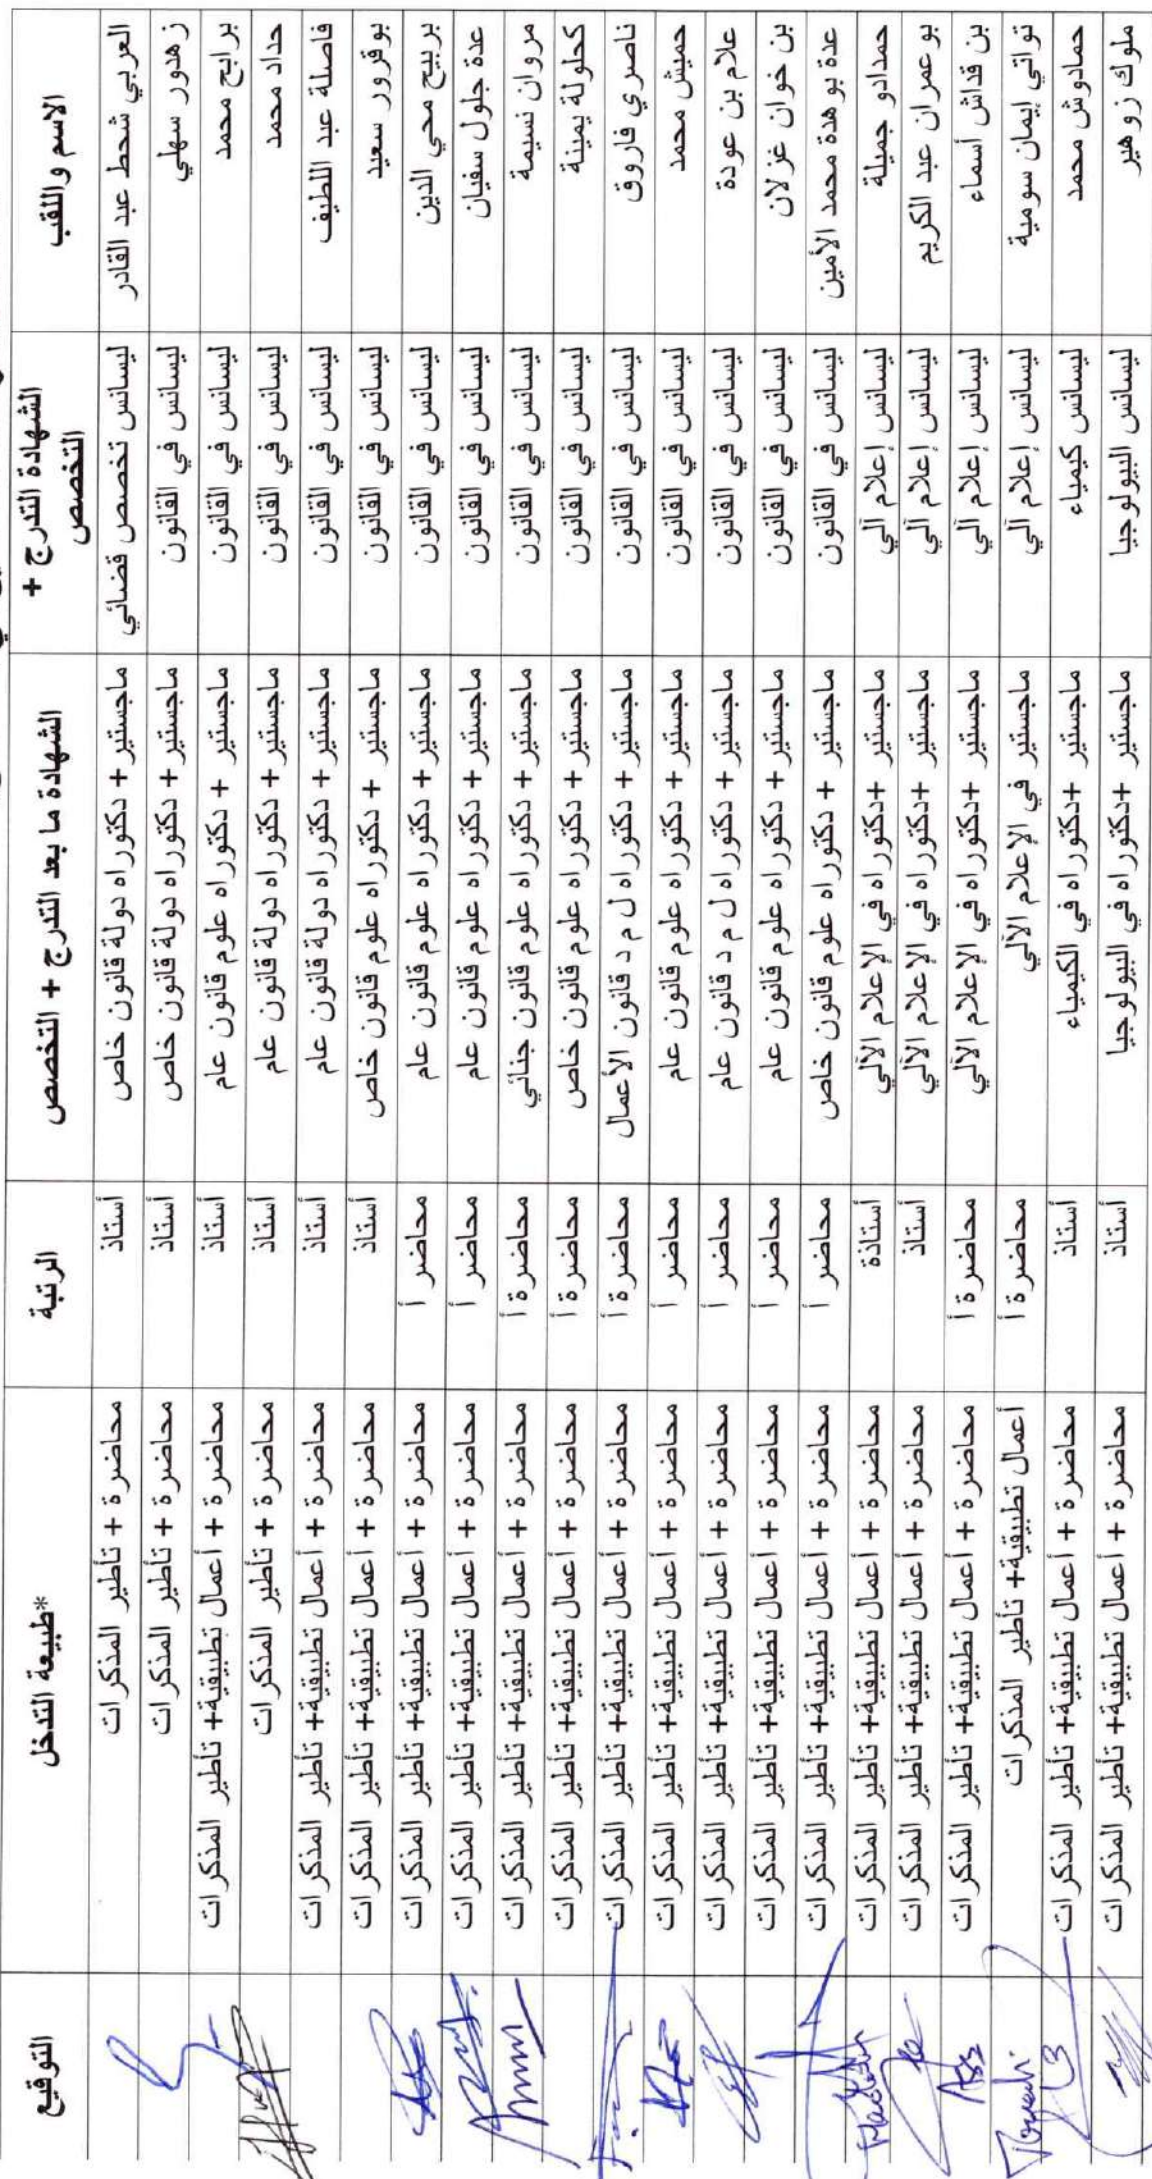 الاسم واللقب | الشهادة التدرج + التخصص | الشهادة ما بعد التدرج + التخصص | الرتبة | طبيعة التدخل* | التوقيع
العربي شحط عبد القادر | ليسانس تخصص قضائي | ماجستير + دكتوراه دولة قانون خاص | أستاذ | محاضرة + تأطير المذكرات
زهدور سهلي | ليسانس في القانون | ماجستير + دكتوراه دولة قانون خاص | أستاذ | محاضرة + تأطير المذكرات
برابح محمد | ليسانس في القانون | ماجستير + دكتوراه علوم قانون عام | أستاذ | محاضرة + أعمال تطبيقية+ تأطير المذكرات
حداد محمد | ليسانس في القانون | ماجستير + دكتوراه دولة قانون عام | أستاذ | محاضرة + تأطير المذكرات
فاصلة عبد اللطيف | ليسانس في القانون | ماجستير + دكتوراه دولة قانون عام | أستاذ | محاضرة + أعمال تطبيقية+ تأطير المذكرات
بوقرور سعيد | ليسانس في القانون | ماجستير + دكتوراه علوم قانون خاص | أستاذ | محاضرة + أعمال تطبيقية+ تأطير المذكرات
بربيح محي الدين | ليسانس في القانون | ماجستير + دكتوراه علوم قانون عام | محاضر أ | محاضرة + أعمال تطبيقية+ تأطير المذكرات
عدة جلول سفيان | ليسانس في القانون | ماجستير + دكتوراه علوم قانون عام | محاضر أ | محاضرة + أعمال تطبيقية+ تأطير المذكرات
مروان نسيمة | ليسانس في القانون | ماجستير + دكتوراه علوم قانون جنائي | محاضرة أ | محاضرة + أعمال تطبيقية+ تأطير المذكرات
كحلولة يمينة | ليسانس في القانون | ماجستير + دكتوراه علوم قانون خاص | محاضرة أ | محاضرة + أعمال تطبيقية+ تأطير المذكرات
ناصري فاروق | ليسانس في القانون | ماجستير + دكتوراه ل م د قانون الأعمال | محاضرة أ | محاضرة + أعمال تطبيقية+ تأطير المذكرات
حميش محمد | ليسانس في القانون | ماجستير + دكتوراه علوم قانون عام | محاضر أ | محاضرة + أعمال تطبيقية+ تأطير المذكرات
علام بن عودة | ليسانس في القانون | ماجستير + دكتوراه ل م د قانون عام | محاضر أ | محاضرة + أعمال تطبيقية+ تأطير المذكرات
بن خوان غزلان | ليسانس في القانون | ماجستير + دكتوراه علوم قانون عام | محاضر أ | محاضرة + أعمال تطبيقية+ تأطير المذكرات
عدة بوهدة محمد الأمين | ليسانس في القانون | ماجستير + دكتوراه علوم قانون خاص | محاضر أ | محاضرة + أعمال تطبيقية+ تأطير المذكرات
حمدادو جميلة | ليسانس إعلام آلي | ماجستير +دكتوراه في الإعلام الآلي | أستاذة | محاضرة + أعمال تطبيقية+ تأطير المذكرات
بوعمران عبد الكريم | ليسانس إعلام آلي | ماجستير +دكتوراه في الإعلام الآلي | أستاذ | محاضرة + أعمال تطبيقية+ تأطير المذكرات
بن قداش أسماء | ليسانس إعلام آلي | ماجستير +دكتوراه في الإعلام الآلي | محاضرة أ | محاضرة + أعمال تطبيقية+ تأطير المذكرات
تواتي إيمان سومية | ليسانس إعلام آلي | ماجستير في الإعلام الآلي | محاضرة أ | أعمال تطبيقية+ تأطير المذكرات
حمادوش محمد | ليسانس كيمياء | ماجستير +دكتوراه في الكيمياء | أستاذ | محاضرة + أعمال تطبيقية+ تأطير المذكرات
ملوك زوهير | ليسانس البيولوجيا | ماجستير +دكتوراه في البيولوجيا | أستاذ | محاضرة + أعمال تطبيقية+ تأطير المذكرات